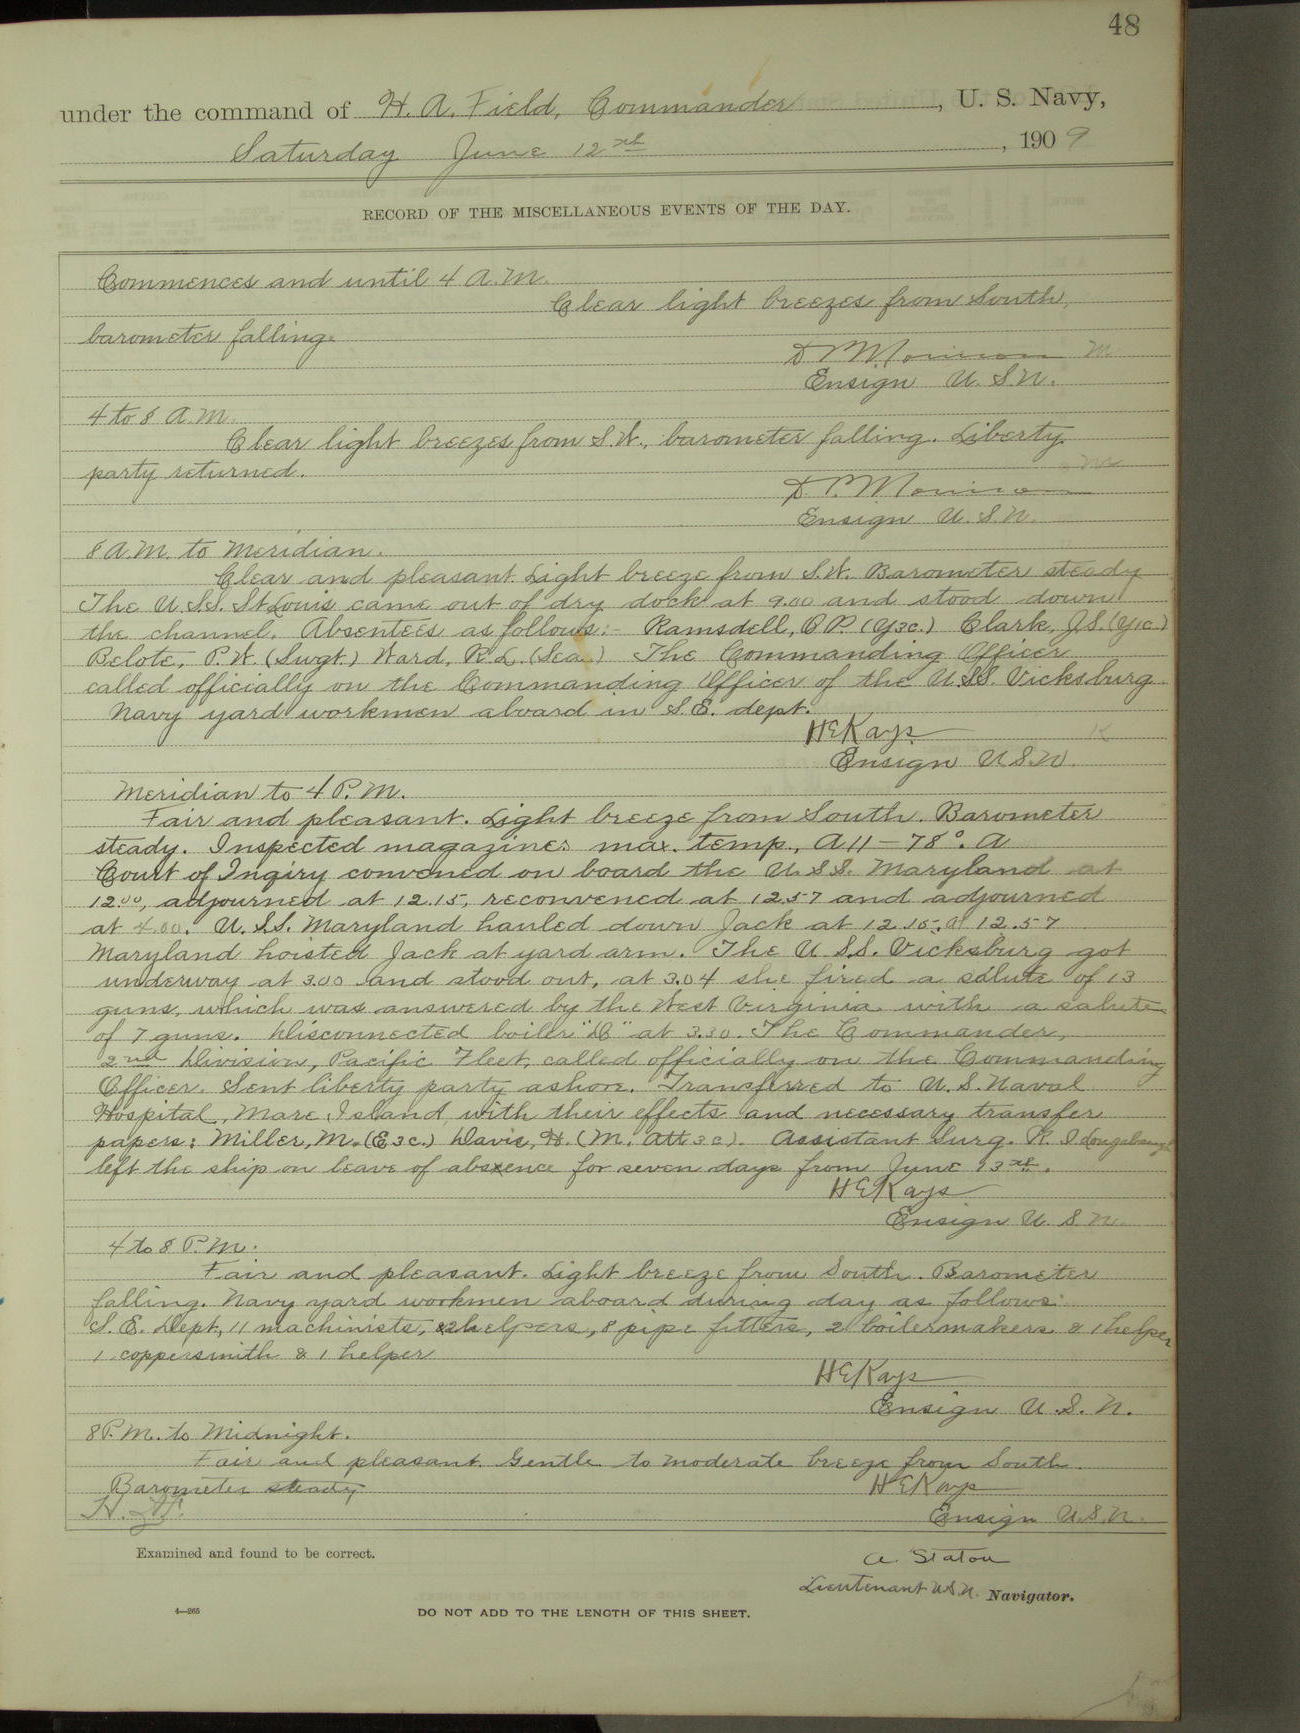 48
under the command of H. A. Field, Commander, U. S. Navy,
Saturday June 12th, 1909
RECORD OF THE MISCELLANEOUS EVENTS OF THE DAY.
Commences and until 4 A.M.
Clear light breezes from South,
barometer falling.
D P Morrison
Ensign U.S.N.
4 to 8 A.M.
Clear light breezes from S.W., barometer falling. Liberty
party returned.
D P Morrison
Ensign U.S.N.
8 A.M. to Meridian.
Clear and pleasant. Light breeze from S.W. Barometer steady
The U.S.S. St Louis came out of dry dock at 9.00 and stood down
the channel. Absentees as follows:- Ramsdell, O.P. (Y3c.) Clark, J.S. (Y1c.)
Belote, P.W. (Swgt.) Ward, R.L. (Sea.) The Commanding Officer
called officially on the Commanding Officer of the U.S.S. Vicksburg.
Navy yard workmen aboard in S.E. dept.
H E Kays
Ensign U.S.N.
Meridian to 4 P.M.
Fair and pleasant. Light breeze from South. Barometer
steady. Inspected magazines max. temp., A11-78°. A
Court of Inqiry convened on board the U.S.S. Maryland at
12.00, adjourned at 12.15, reconvened at 12.57 and adjourned
at 4.00. U.S.S. Maryland hauled down Jack at 12.15. at 12.57
Maryland hoisted Jack at yard arm. The U.S.S. Vicksburg got
underway at 3.00 and stood out, at 3.04 she fired a salute of 13
guns, which was answered by the West Virginia with a salute
of 7 guns. Disconnected boiler "D" at 3.30. The Commander,
2nd Division, Pacific Fleet, called officially on the Commanding
Officer. Sent liberty party ashore. Transferred to U.S. Naval
Hospital, Mare Island, with their effects and necessary transfer
papers: Miller, M. (E3c.) Davis, H. (M. Att 3c). Assistant Surg. R. I Longabaugh
left the ship on leave of absence for seven days from June 13th.
H E Kays
Ensign U.S.N.
4 to 8 P.M.
Fair and pleasant. Light breeze from South. Barometer
falling. Navy yard workmen aboard during day as follows:
S.E. Dept, 11 machinists, & 2 helpers, 8 pipe fitters, 2 boilermakers & 1 helper
1 coppersmith & 1 helper
H E Kays
Ensign U.S.N.
8 P.M. to Midnight.
Fair and pleasant. Gentle to moderate breeze from South.
Barometer steady
H E Kays
Ensign U.S.N.
Examined and found to be correct.
A. Staton
Lieutenant U.S.N. Navigator.
4—265
DO NOT ADD TO THE LENGTH OF THIS SHEET.